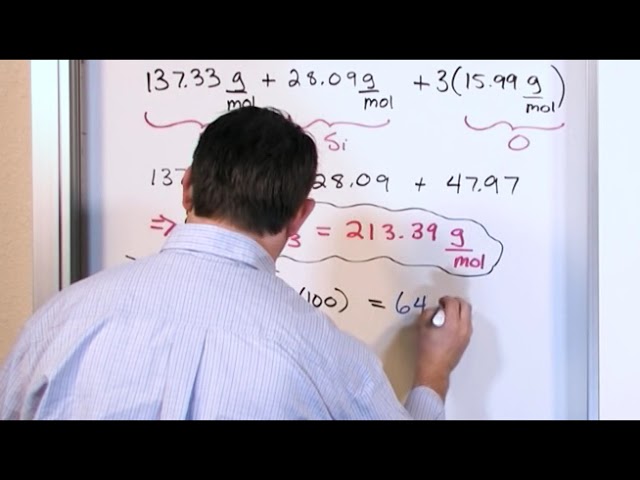 137.33 g/mol + 28.09 g/mol + 3(15.99 g/mol)
Si O
137 28.09 + 47.97
⇒ 3 = 213.39 g/mol
(100) = 64